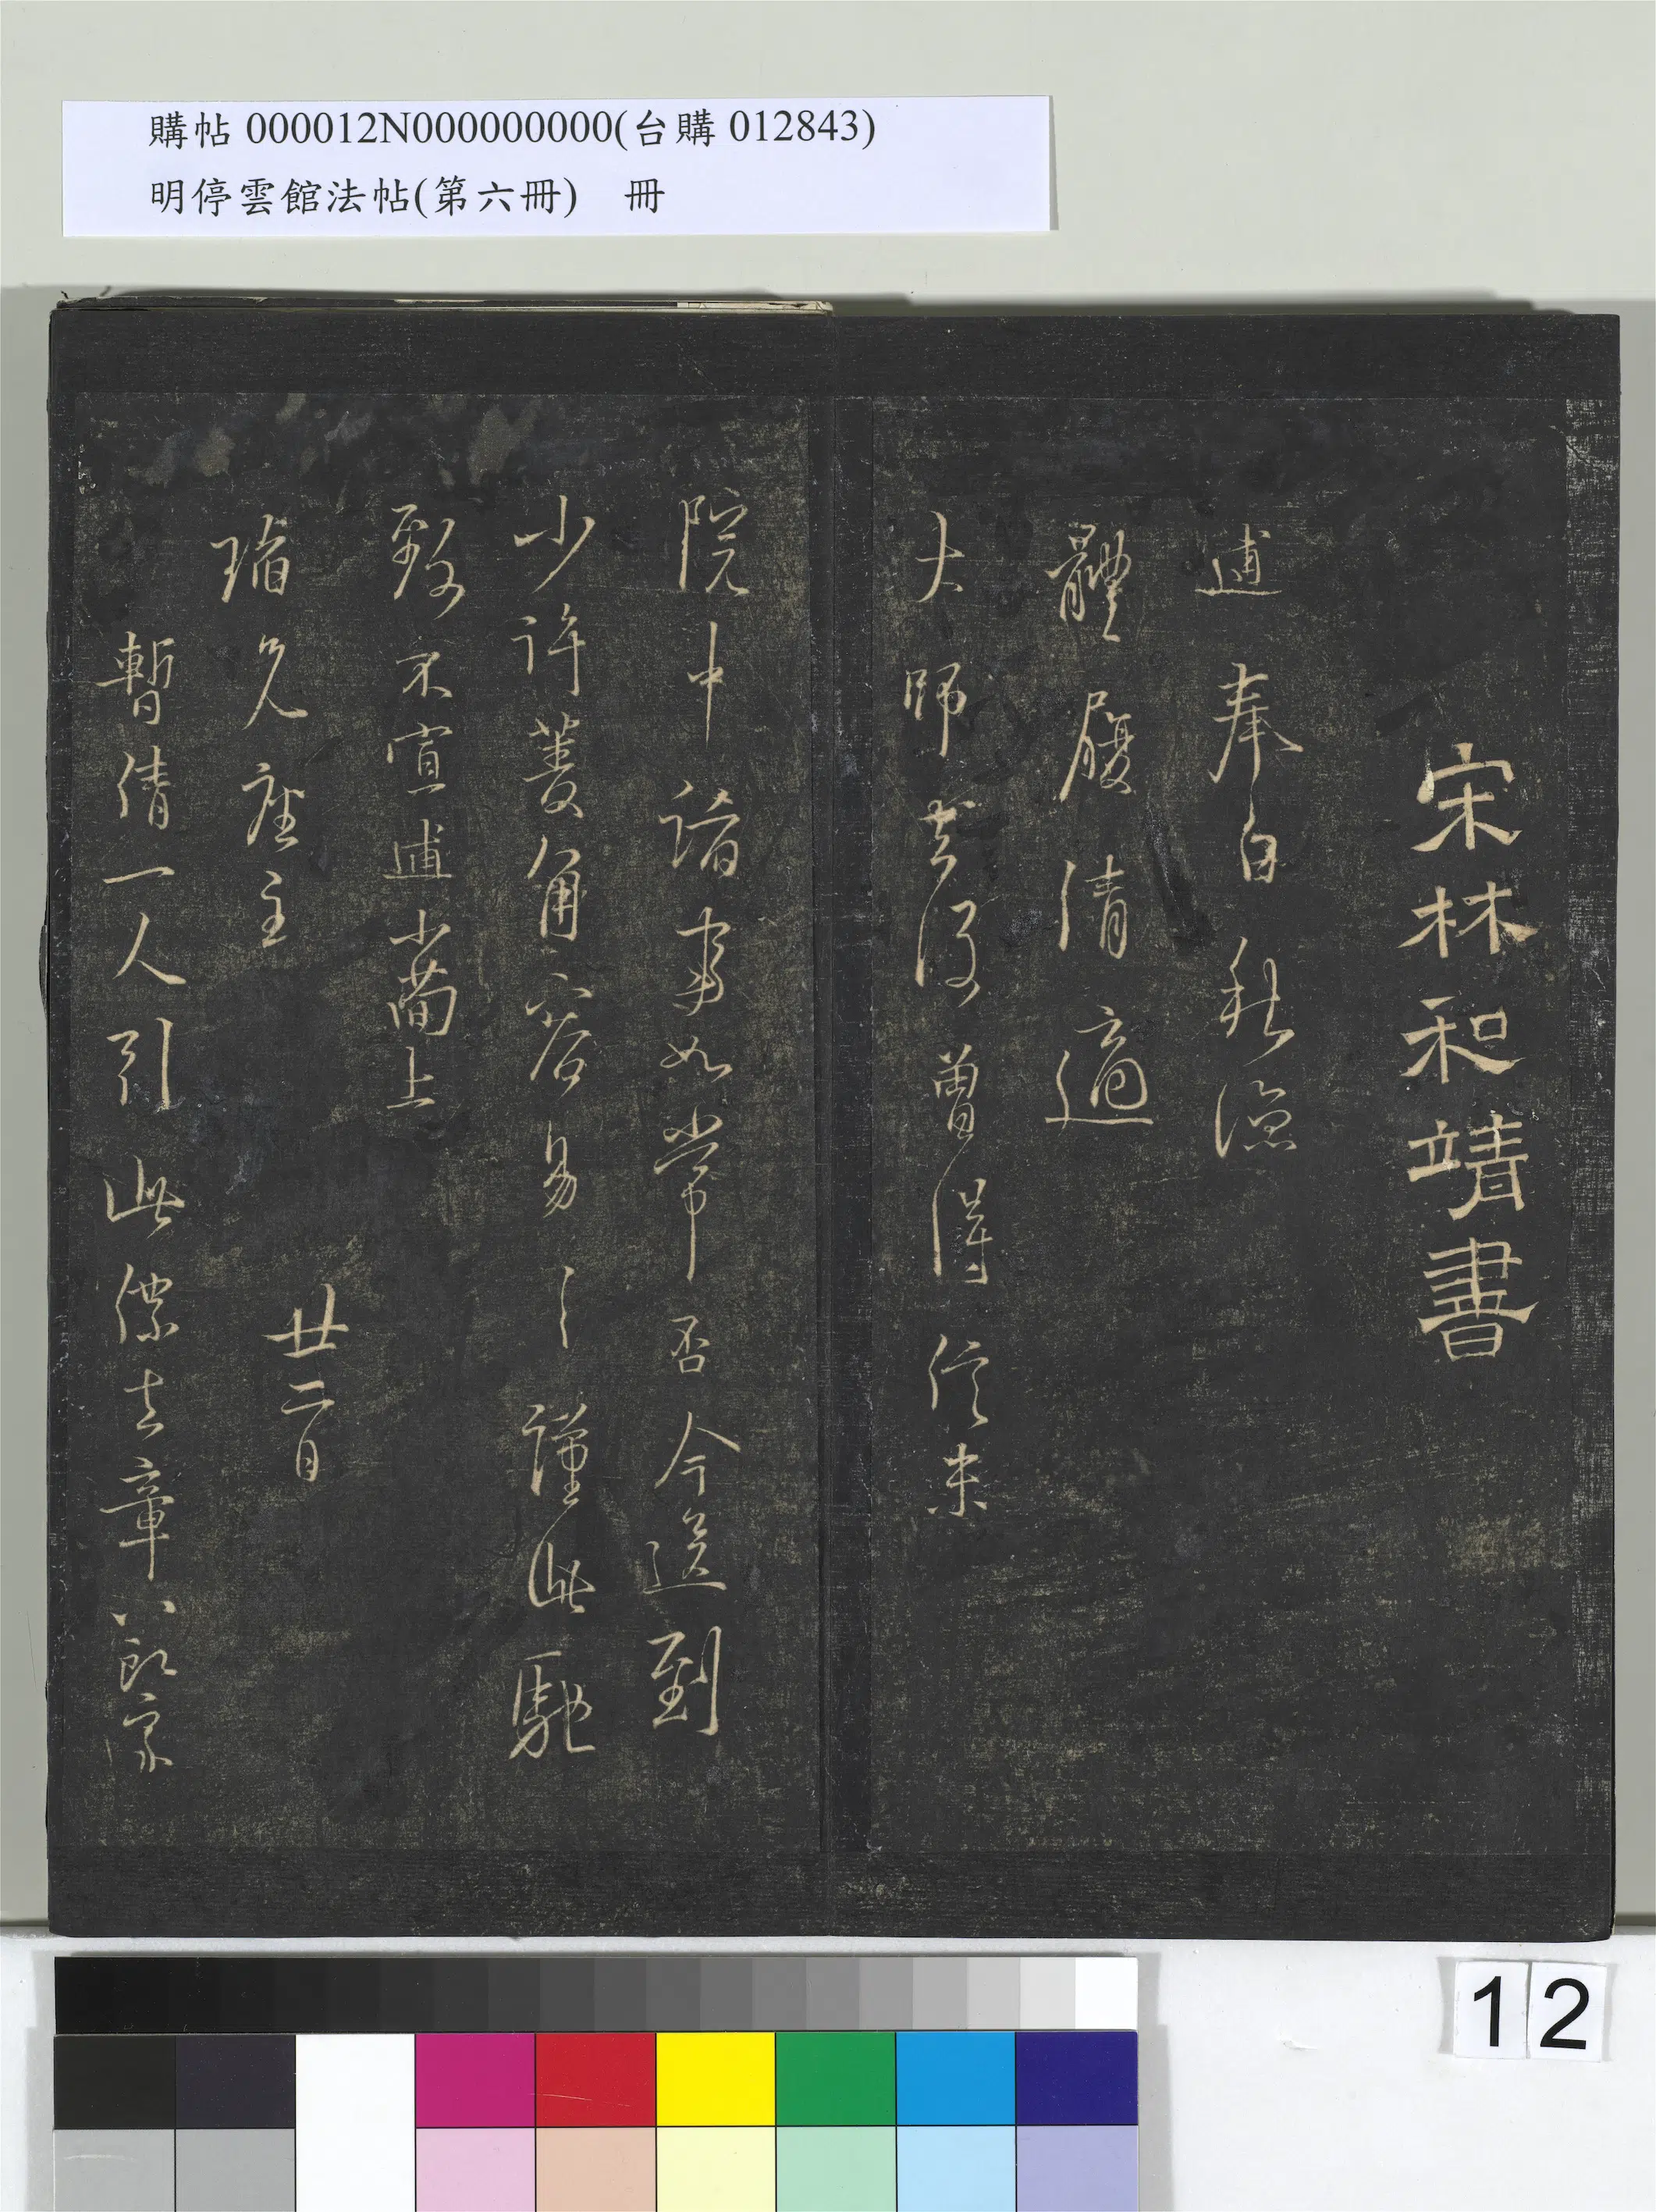 購帖 000012N000000000(台購 012843)
明停雲館法帖(第六冊) 冊
宋林和靖書
逋奉白秋涼
體履清適
大師去後曾得信未
院中諸事如常否今送到
少許菱角容易〻謹此馳
致不宣逋小簡上
瑙兄座主 廿二日
暫倩一人引此僕去章八郎家
12